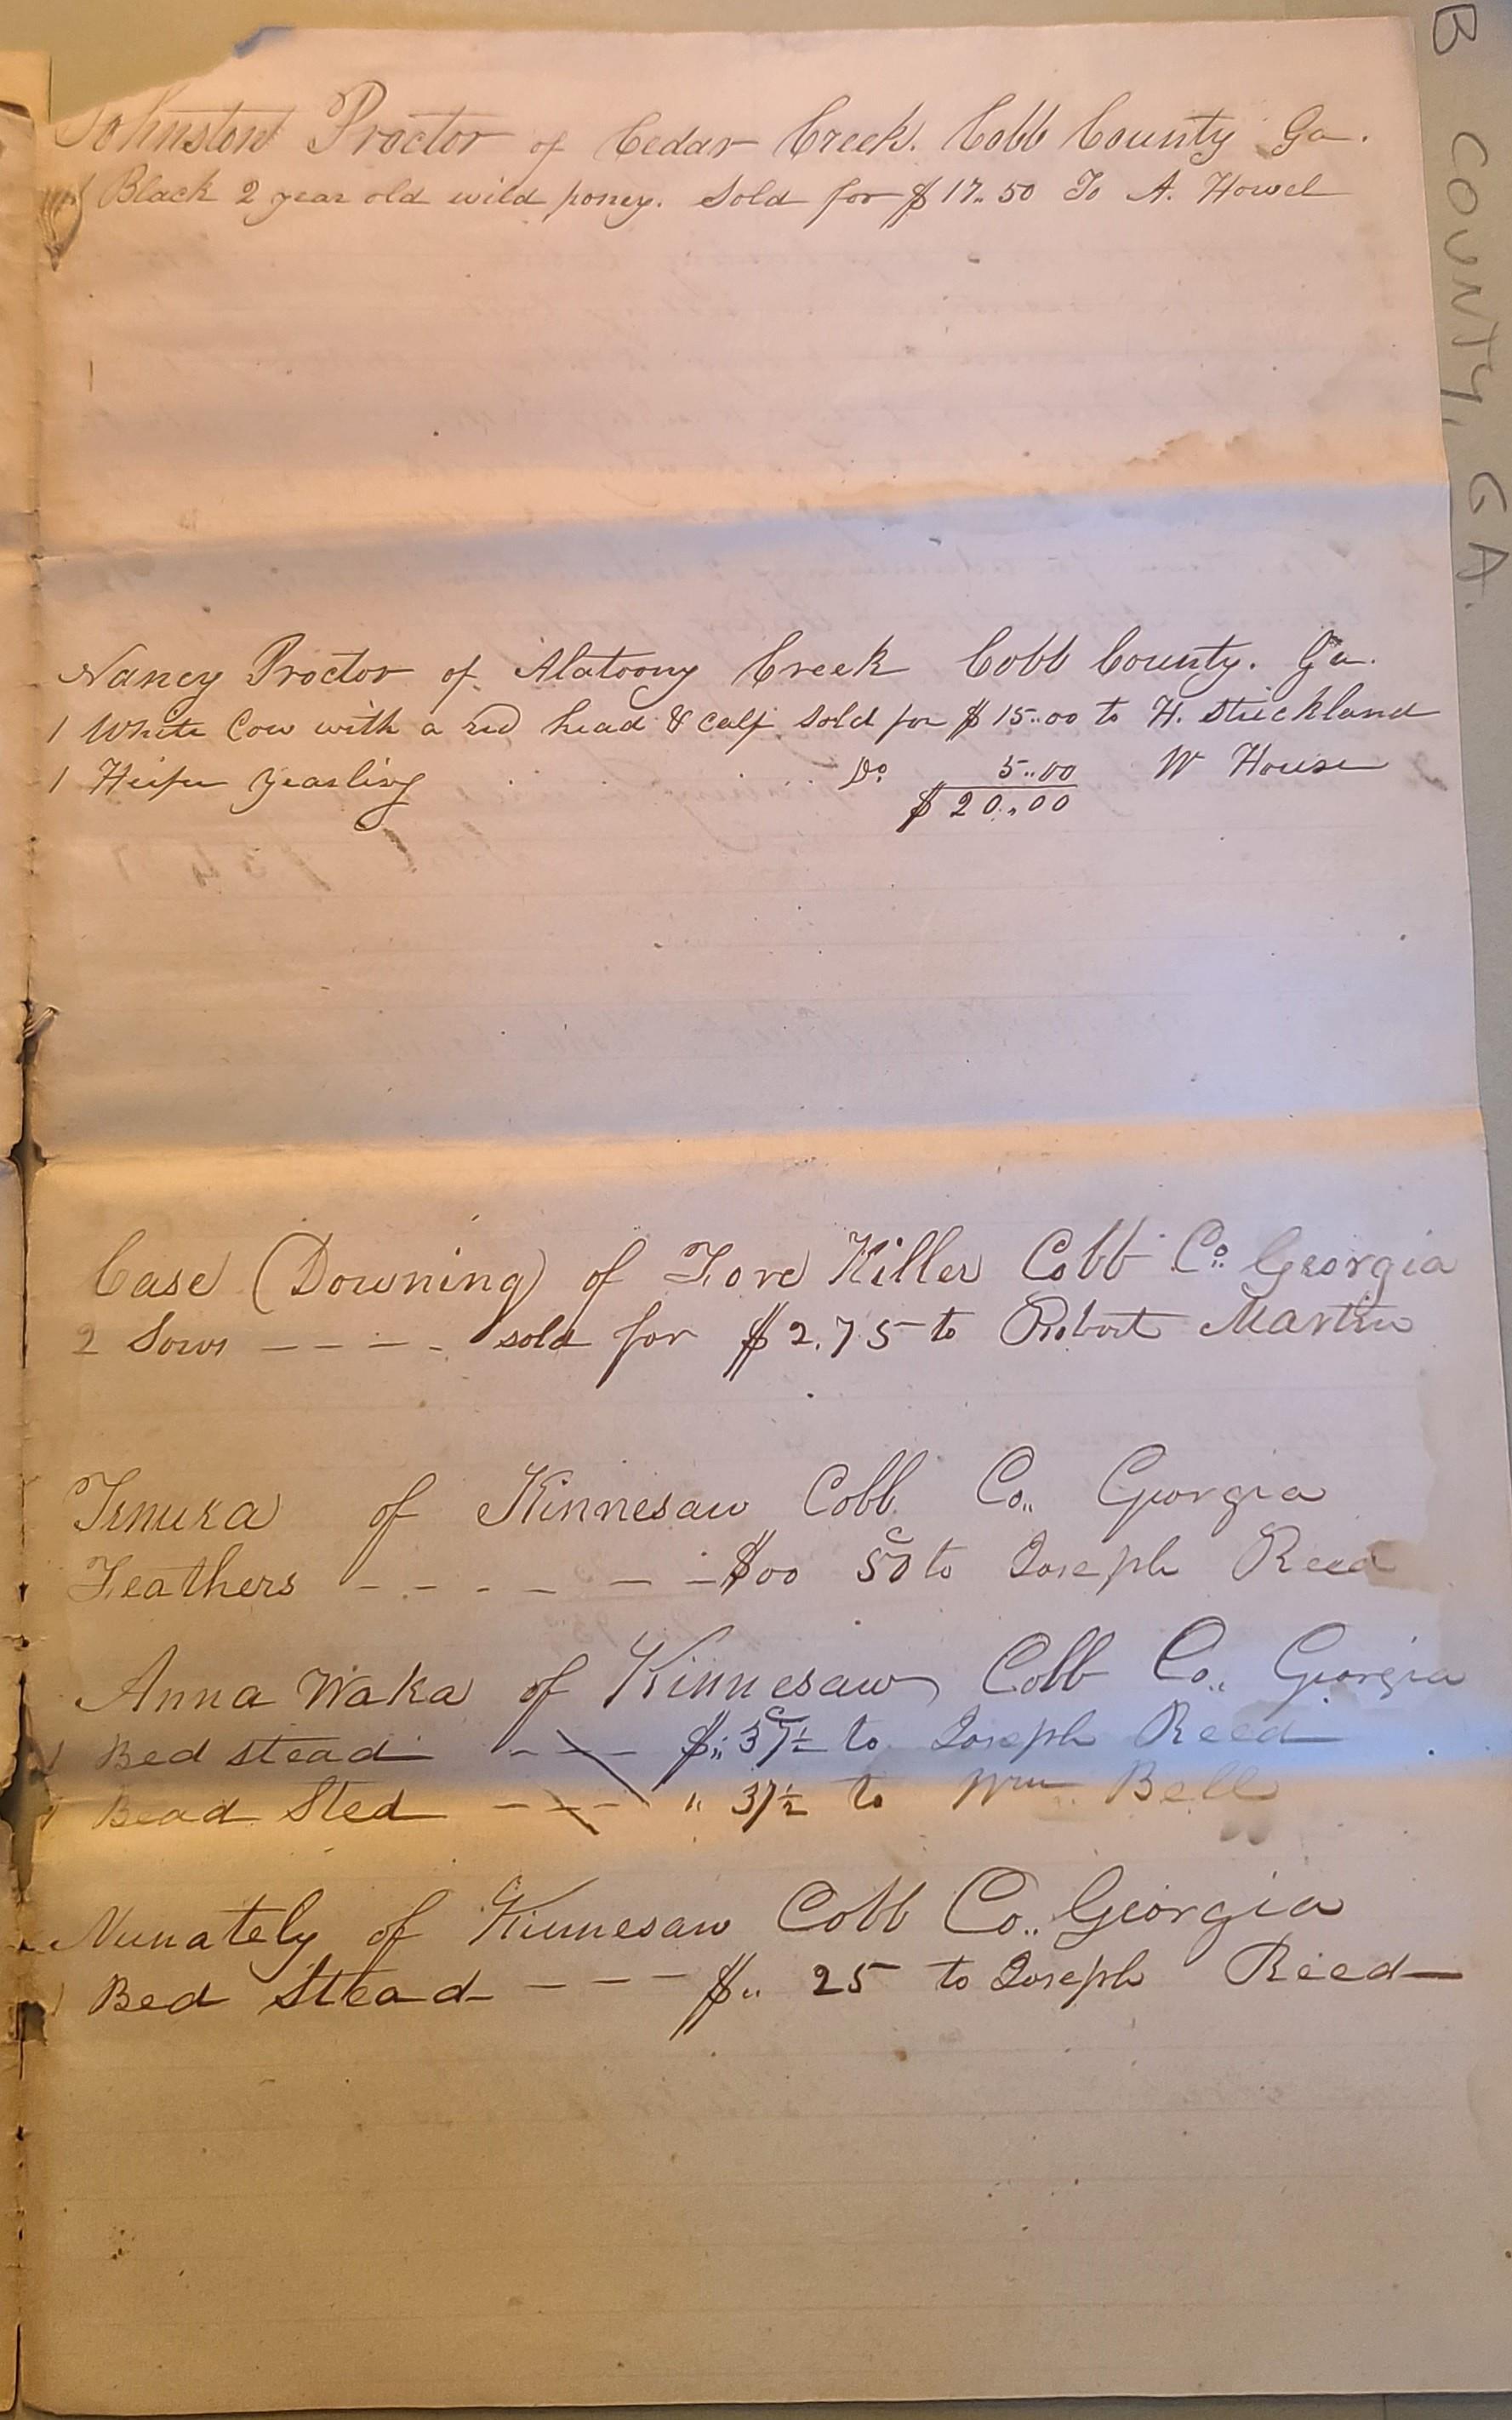 Johnston Proctor of Cedar Creek. Cobb County Ga.
1 Black 2 year old wild poney. Sold for $17.50 To A. Howel
Nancy Proctor of Alatoony Creek Cobb County. Ga.
1 White Cow with a red head & calf sold for $15..00 to H. Strickland
1 Heifer yearling Do. 5..00 W House
$20..00
Case (Downing) of Fore Killer Cobb Co. Georgia
2 Sows ---- sold for $2.75 to Robert Martin
of Kinnesaw Cobb Co.. Georgia
Feathers ------ $00 50 c to Joseph Reed
Anna Waka of Kinnesaw Cobb Co.. Georgia
1 Bed stead --- $.. 37½ c to Joseph Reed
1 Bead Sted --- " 37½ to Wm Bell
Nunately of Kinnesaw Cobb Co.. Georgia
1 Bed Stead --- $.. 25 to Joseph Reed
B COUNTY, GA.